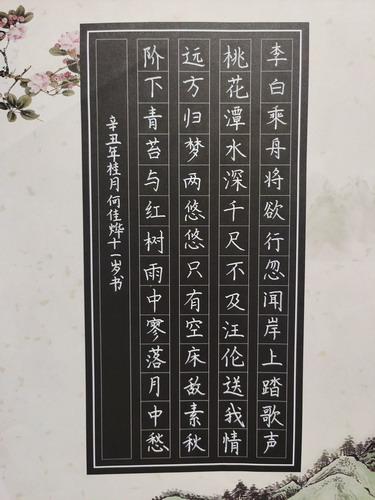 李白乘舟将欲行忽闻岸上踏歌声
桃花潭水深千尺不及汪伦送我情
远方归梦两悠悠只有空床敌素秋
阶下青苔与红树雨中寥落月中愁
辛丑年桂月何佳烨十一岁书